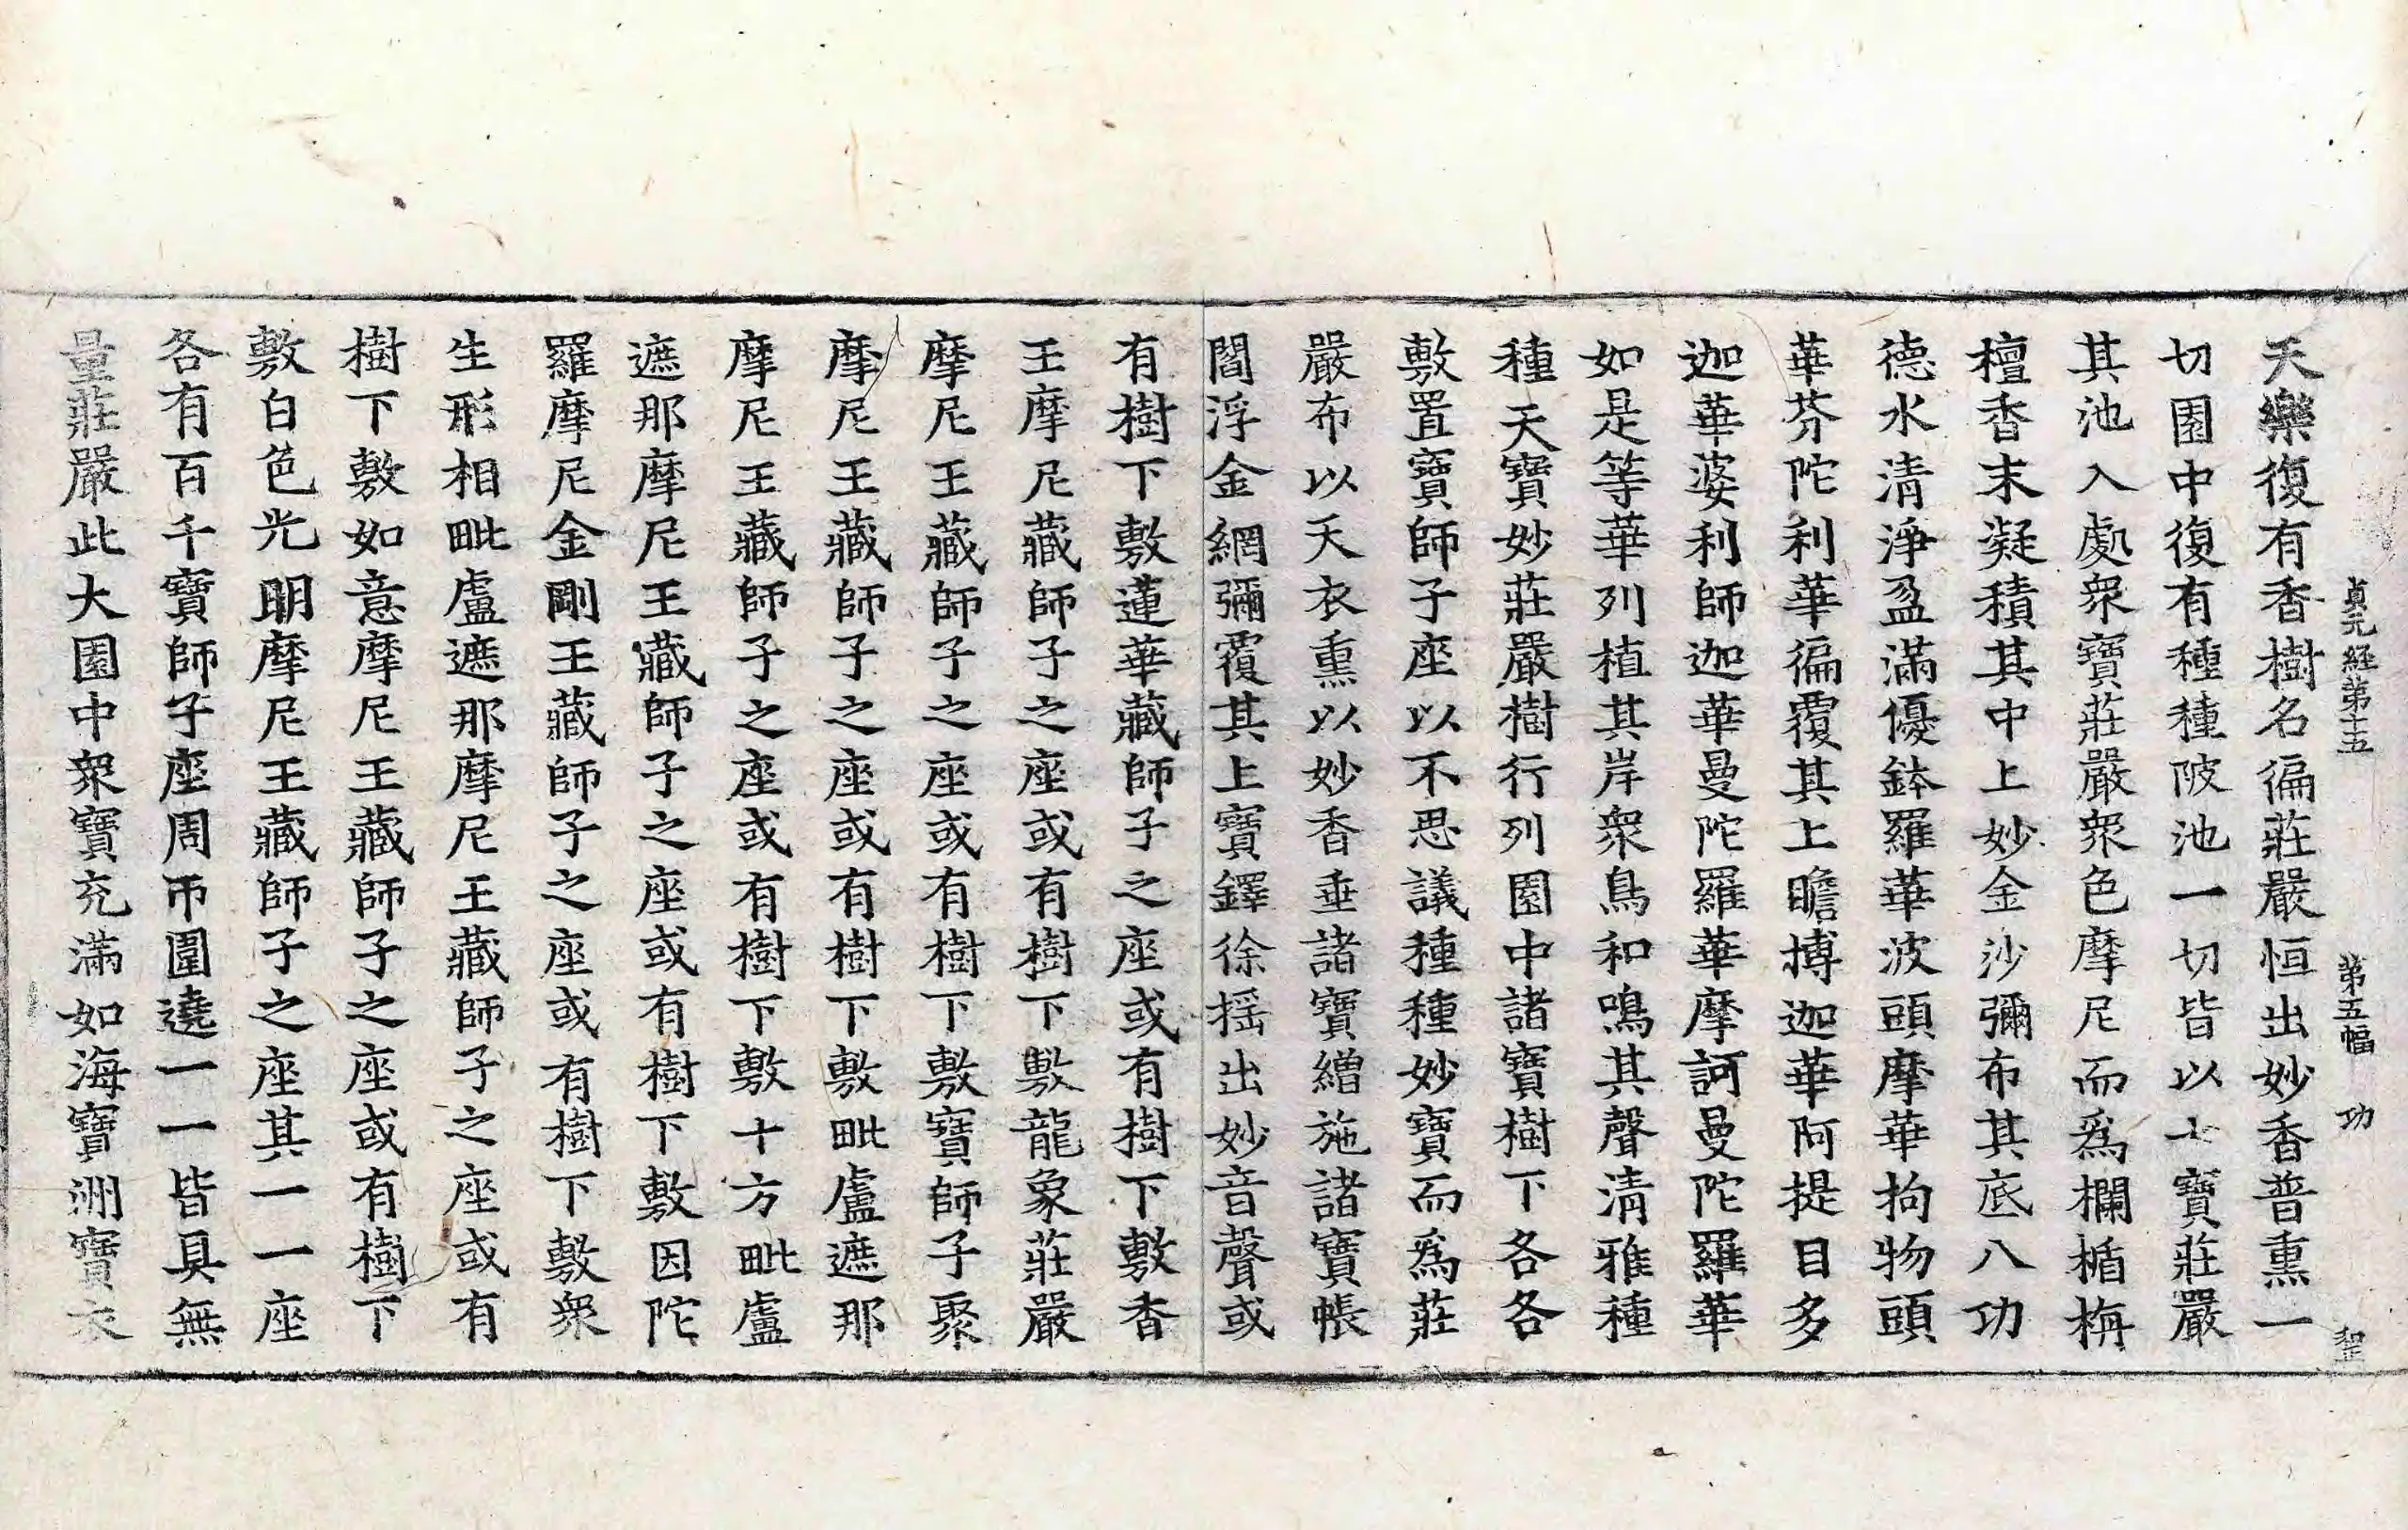 貞元経第十五 第五幅 功
天樂復有香樹名徧莊嚴恒出妙香普熏一
切園中復有種種陂池一切皆以七寶莊嚴
其池入處衆寶莊嚴衆色摩尼而爲欄楯栴
檀香末凝積其中上妙金沙彌布其底八功
德水清淨盈滿優鉢羅華波頭摩華拘物頭
華芬陀利華徧覆其上瞻博迦華阿提目多
迦華婆利師迦華曼陀羅華摩訶曼陀羅華
如是等華列植其岸衆鳥和鳴其聲清雅種
種天寶妙莊嚴樹行列園中諸寶樹下各各
敷置寶師子座以不思議種種妙寶而爲莊
嚴布以天衣熏以妙香垂諸寶繒施諸寶帳
閻浮金網彌覆其上寶鐸徐摇出妙音聲或
有樹下敷蓮華藏師子之座或有樹下敷香
王摩尼藏師子之座或有樹下敷龍象莊嚴
摩尼王藏師子之座或有樹下敷寶師子聚
摩尼王藏師子之座或有樹下敷毗盧遮那
摩尼王藏師子之座或有樹下敷十方毗盧
遮那摩尼王藏師子之座或有樹下敷因陀
羅摩尼金剛王藏師子之座或有樹下敷衆
生形相毗盧遮那摩尼王藏師子之座或有
樹下敷如意摩尼王藏師子之座或有樹下
敷白色光明摩尼王藏師子之座其一一座
各有百千寶師子座周帀圍遶一一皆具無
量莊嚴此大園中衆寶充滿如海寶洲寶衣